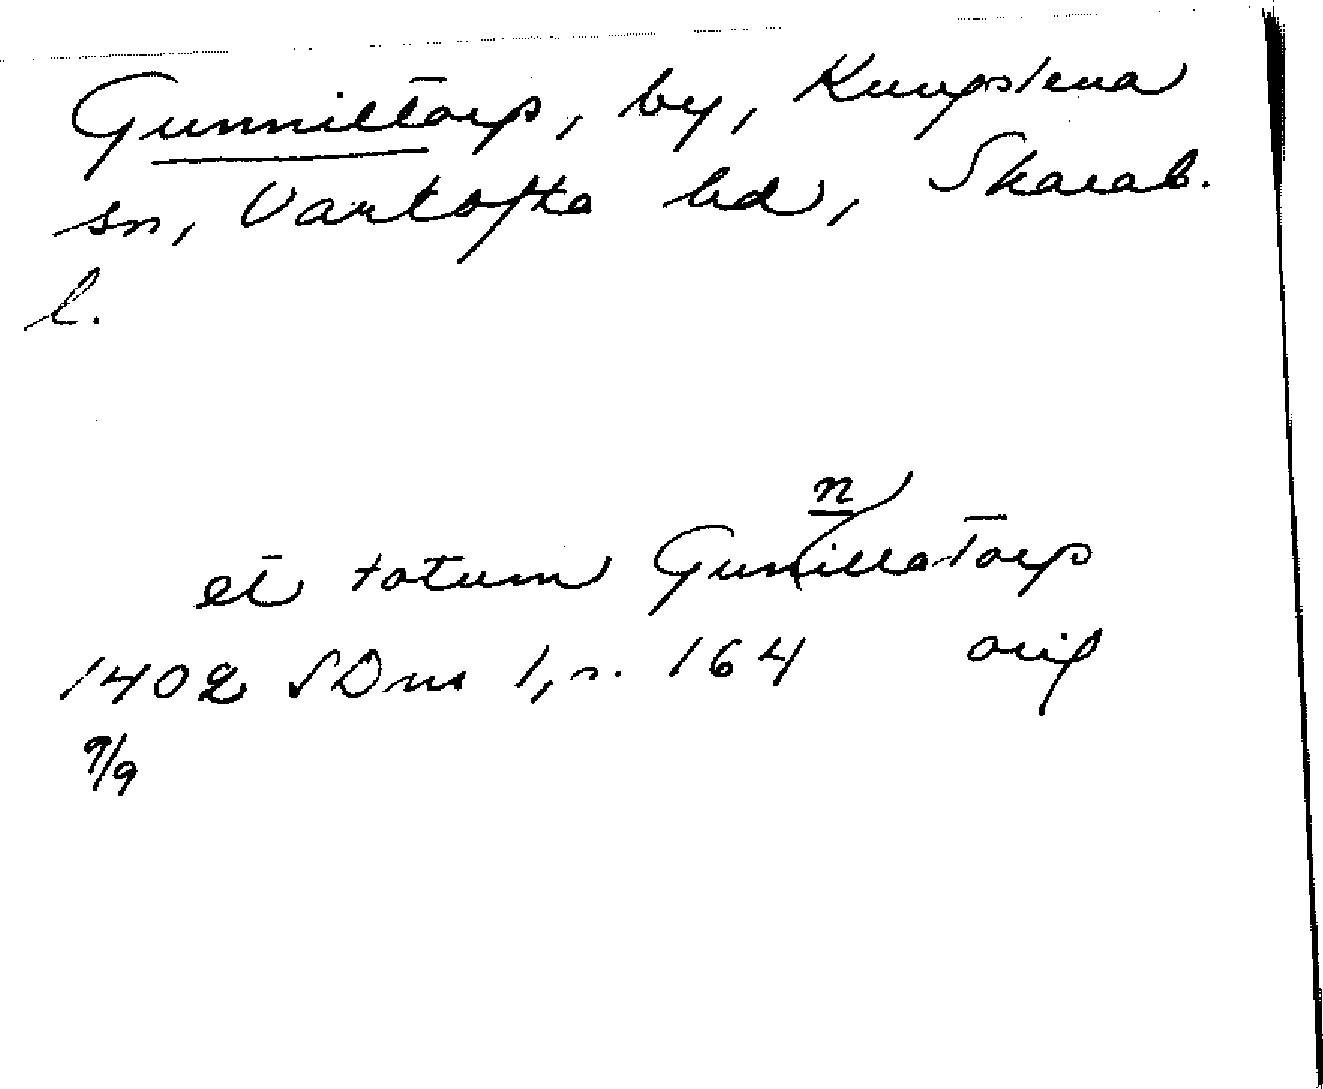 Gunniltorp, by, Kungslena
sn, Vartofta hd, Skarab.
l.
et totum Gunnillatorp
1402 SDns 1, s. 164 orig
9/9